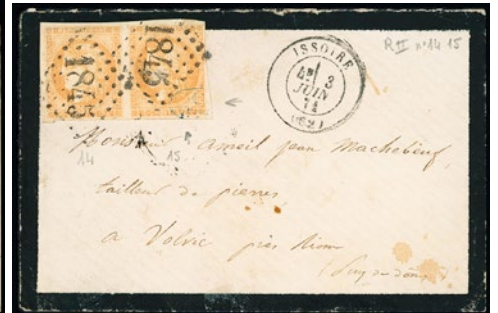 1845 1845
ISSOIRE
3
JUIN
71
(62)
R II n° 14 15
14 15
Monsieur Ameil Jean Machebœuf,
tailleur de pierres,
a Volvic près Riom
(Puy de dôme)